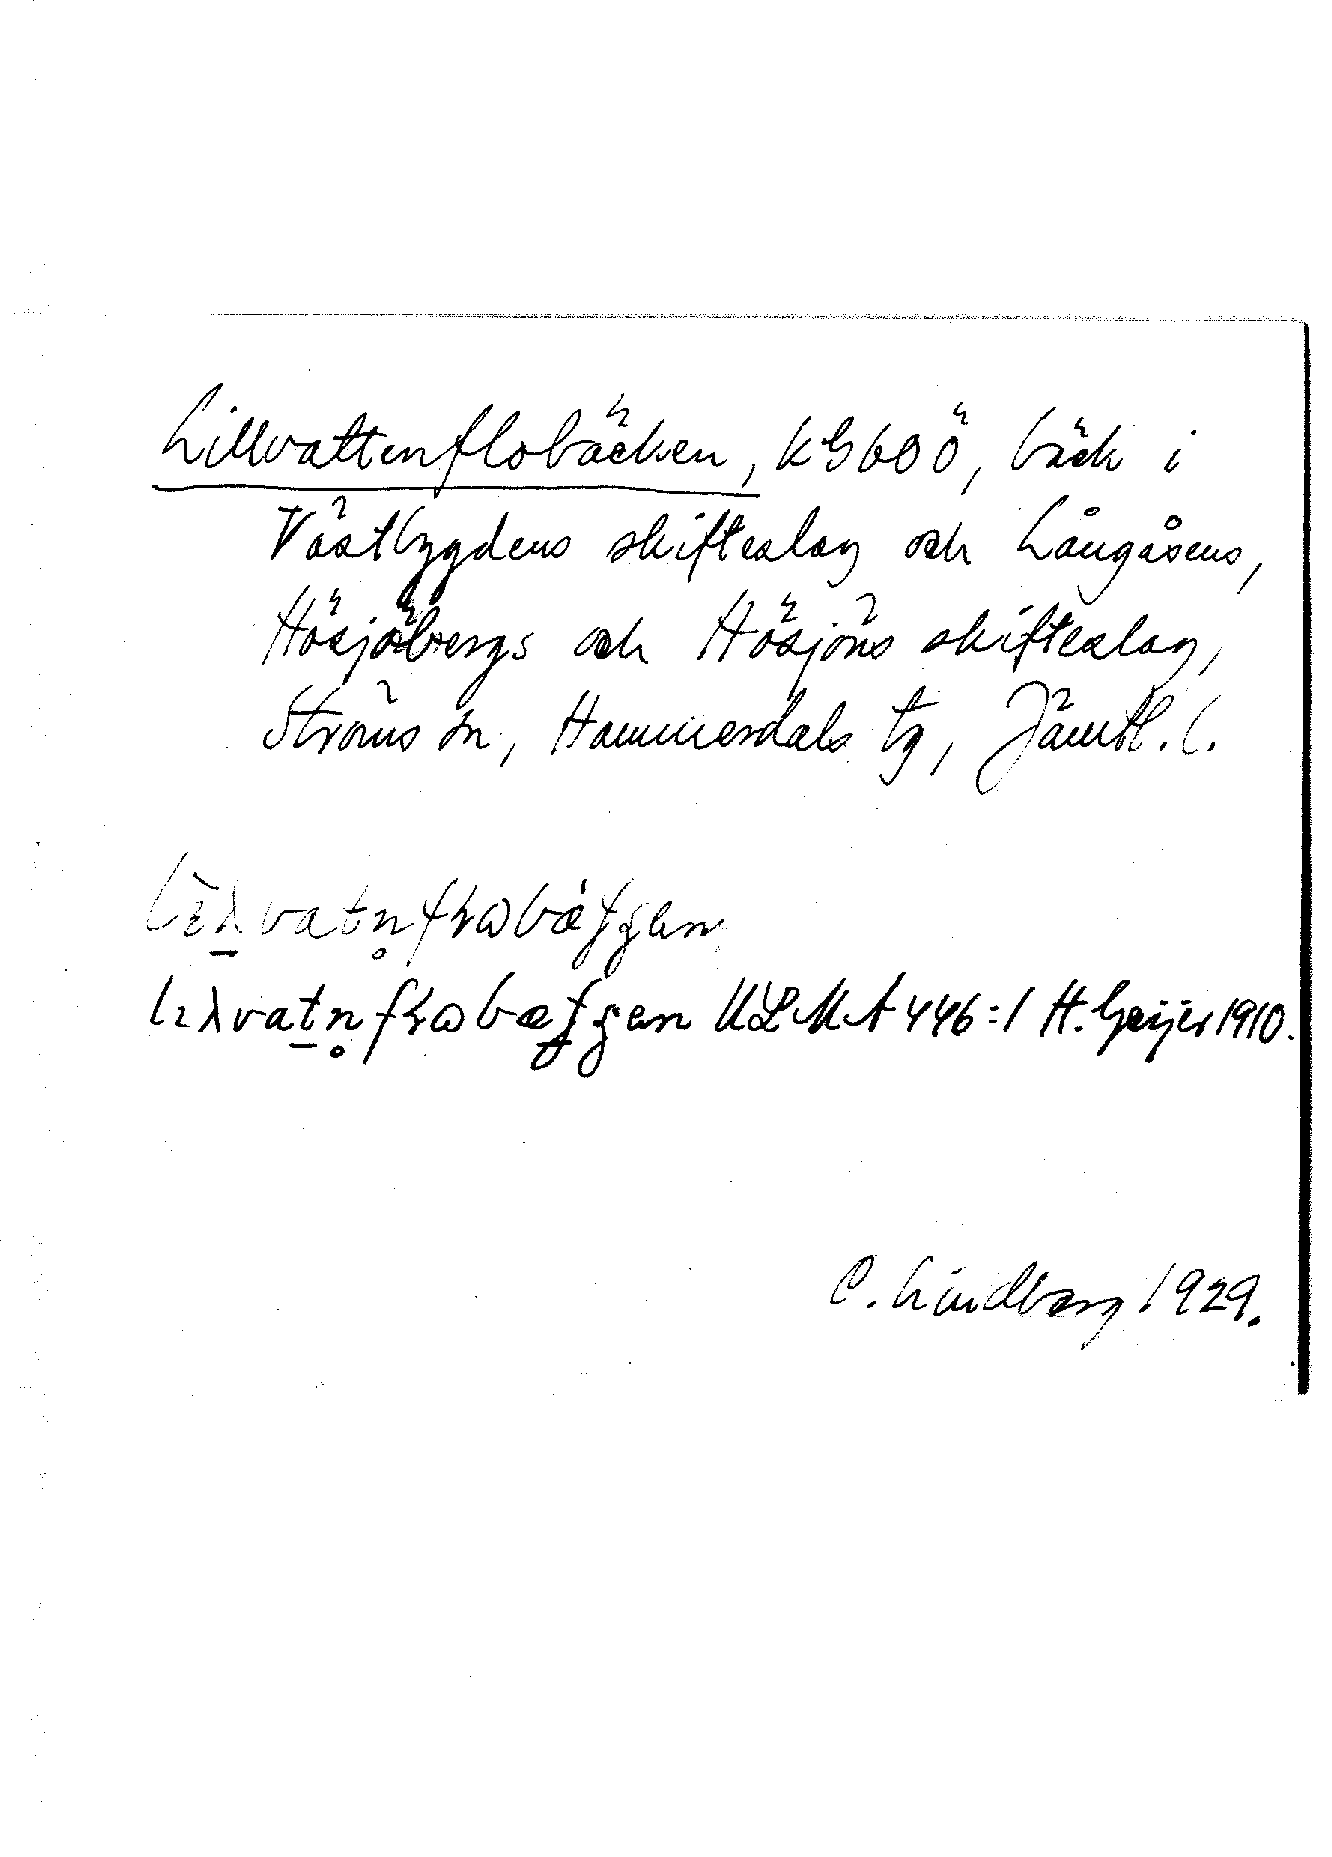 Lillvattenflobäcken, KG60Ö, bäck i
Västbygdens skifteslag och Långåsens,
Hösjöbergs och Hösjöns skifteslag,
Ströms sn, Hammerdals tg, Jämtl. l.
ULMA 446:1 H. Geijer 1910.
C. Lindberg 1929.